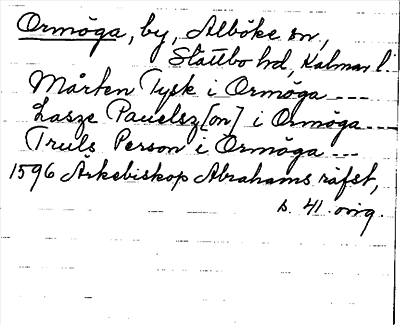 Ormöga, by, Alböke sn,
Slättbo hd, Kalmar l.
Mårten Tysk i Ormöga ---
Lasze Pauelsz[on] i Ormöga ---
Truls Person i Ormöga ---
1596 Ärkebiskop Abrahams räfst,
s. 41 orig.